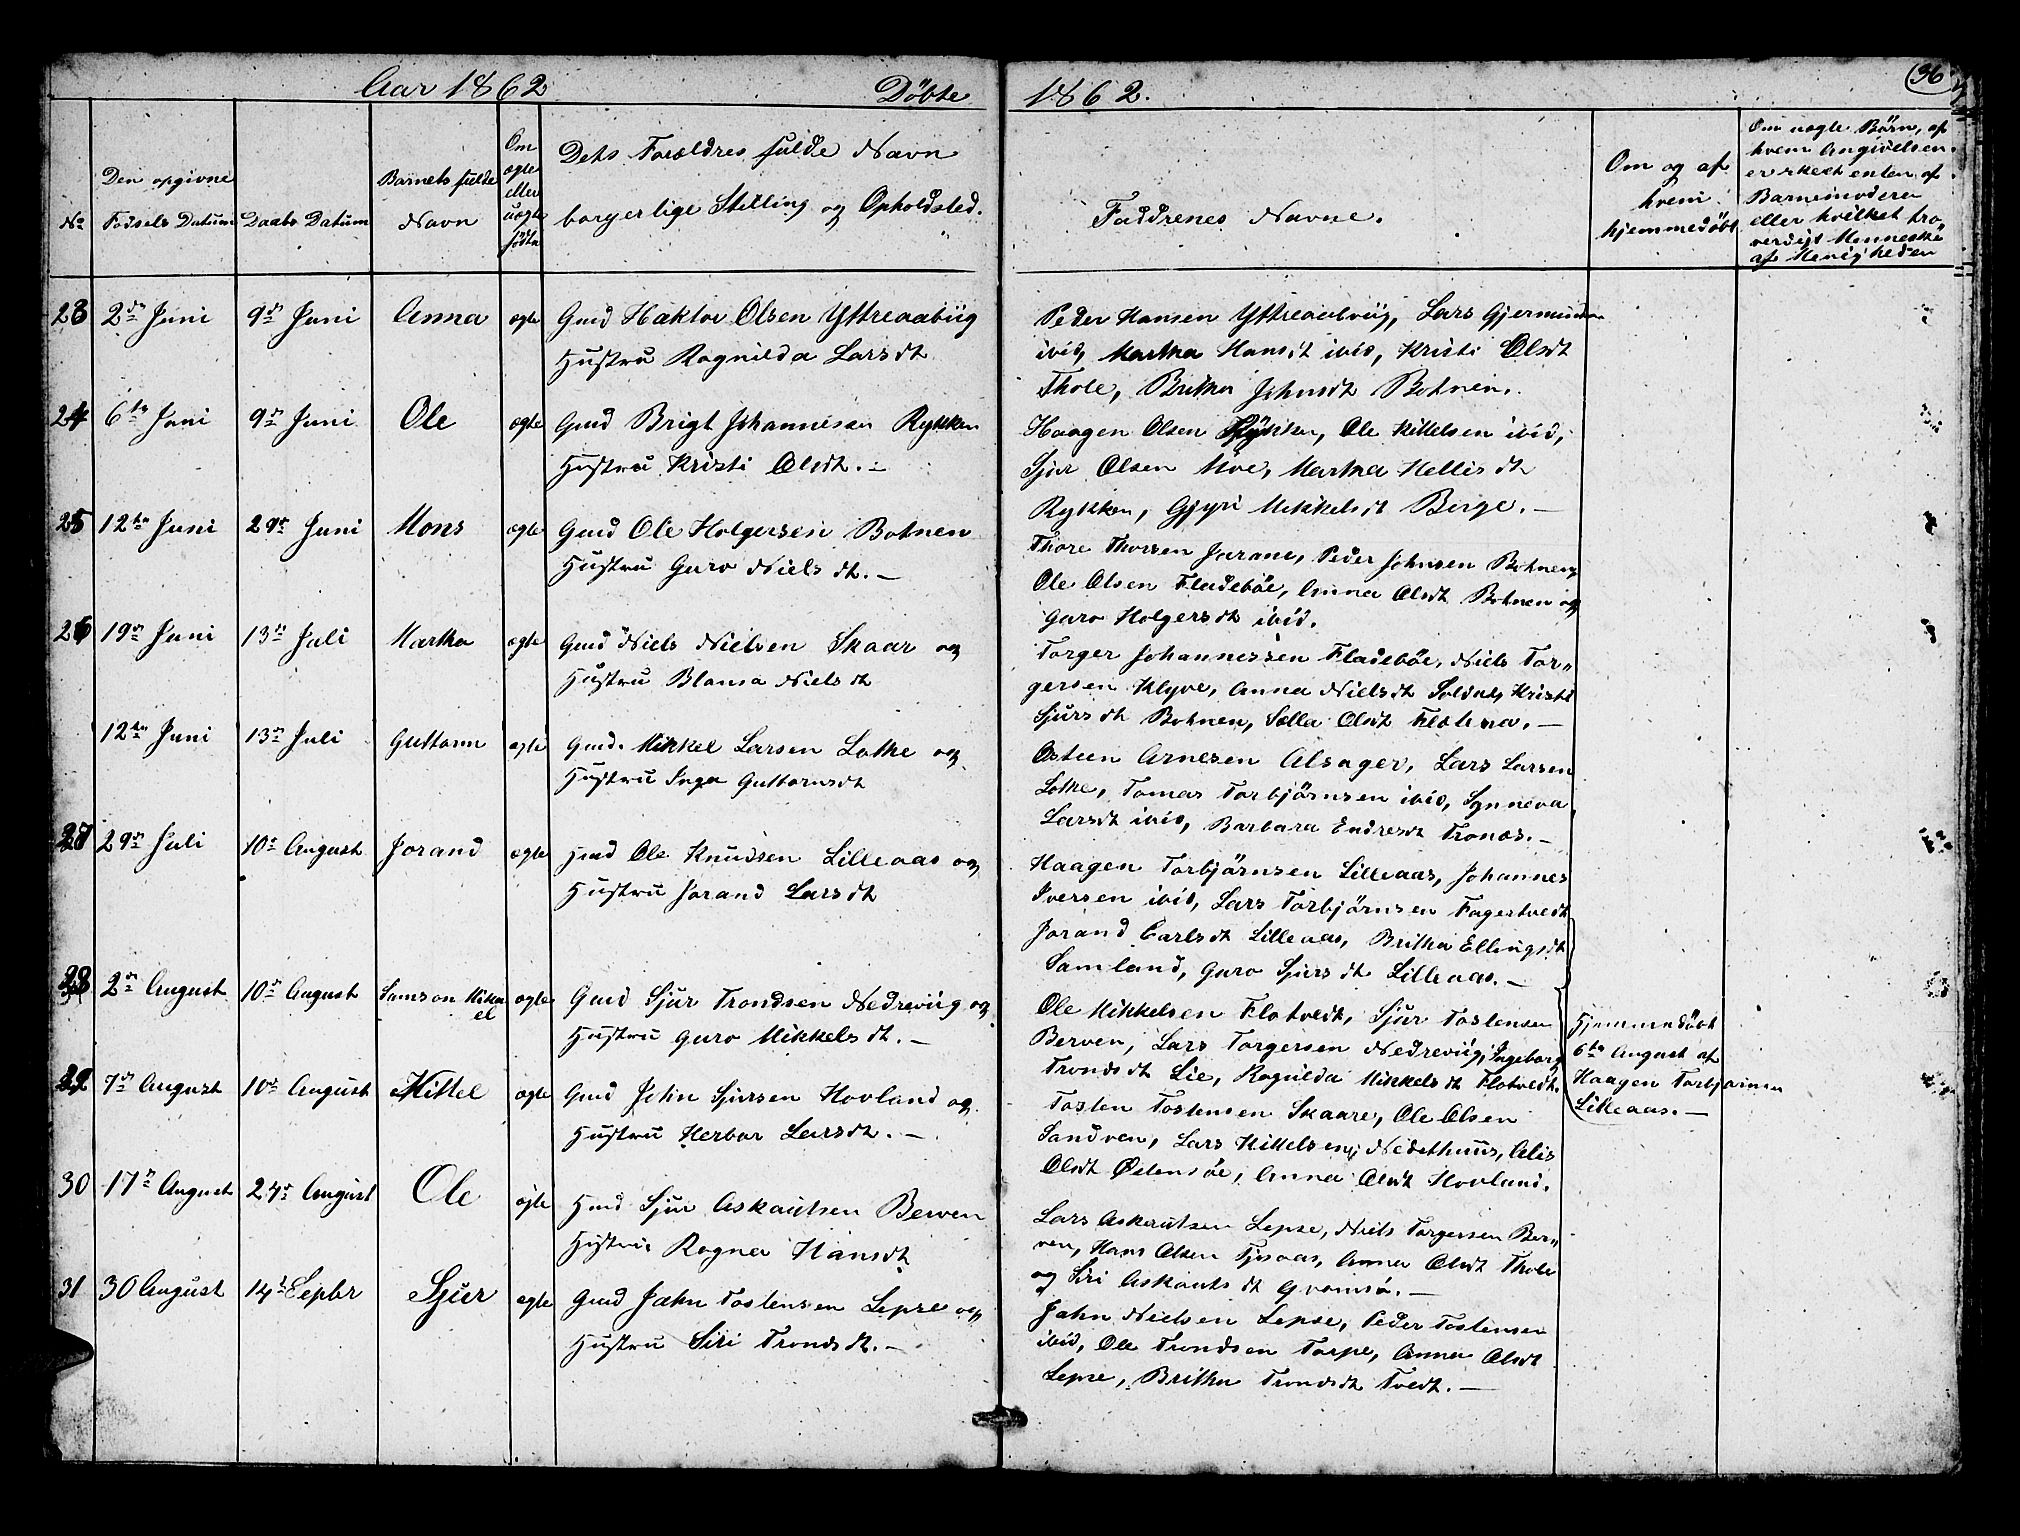 Aar 1862 Döbte 1862. 36
No
Den opgivne
Fødsels Datum
Daabs Datum
Barnets fulde
Navn
Om
ægte
eller
uægte
fødte
Dets Forældres fulde Navn
borgerlige Stilling og Opholdsted.
Faddrenes Navne.
Om og af
hvem
hjemmedöbt
Om uægte Börn, af
hvem Angivelsen
er skeet enten af
Barnemoderen
eller hvilket tro
verdigt Menneske
af Menigheden
23 2den Juni 9de Juni Anna ægte Gmd Haktor Olsen Yttreaabüg
Hustru Ragnilda Larsdt
Peder Hansen Yttreaabvig, Lars Gjermundsen
ibid, Martha Hansdt ibid, Kristi Olsdt
Thole, Britha Johnsdt Botnen.
24 6te Juni 9de Juni Ole ægte Gmd Brigt Johannessen Rykken
Hustru Kristi Olsdt. —
Haagen Olsen Rykken, Ole Kittelsen ibid,
Sjur Olsen Moe, Martha Hellisdt
Rykken, Gjyri Mikkelsdt Berge. —
25 12te Juni 29de Juni Mons ægte Gmd Ole Holgersen Botnen
Hustru Guro Nielsdt. —
Thore Thorsen Jarane, Peder Johnsen Botnen,
Ole Olsen Fladebøe, Anna Olsdt Botnen og
Guro Holgersdt ibid.
26 19de Juni 13de Juli Martha ægte Gmd Niels Nielsen Skaar og
Hustru Blansa Nielsdt
Torger Johannessen Fladebøe, Niels Tor„
gersen Klyve, Anna Nielsdt Soldal, Kristi
Sjursdt Botnen, Sella Olsdt Flotena. —
12te Juni 13de Juli Guttorm ægte Gmd. Mikkel Larsen Lothe og
Hustru Inga Guttormsdt
Osteen Arnesen Alsager, Lars Larsen
Lothe, Tomas Torbjörnsen ibid, Synneva
Larsdt ibid, Barbara Endresdt Tronæs. —
27 29de Juli 10de August Jorand ægte Hmd Ole Knudsen Lilleaas og
Hustru Jorand Larsdt
Haagen Torbjörnsen Lilleaas, Johannes
Iversen ibid, Lars Torbjörnsen Fagertvedt
Jorand Carlsdt Lilleaas, Britha Ellingsdt
Samland, Guro Sjursdt Lilleaas. —
28 2den August 10de August Samson Mikka
el ægte Gmd Sjur Trondsen Nedrevüg og
Hustru Guro Mikkelsdt. —
Ole Mikkelsen Flotvedt, Sjur Tostensen
Berven, Lars Torgersen Nedrevüg, Ingeborg
Trondsdt Lie, Ragnilda Mikkelsdt Flotvedt.
Hjemmedöbt
6te August af
Haagen Torbjørnsen
Lilleaas. —
29 7de August 10de August Kittel ægte Gmd John Sjursen Hovland og
Hustru Herbor Larsdt. —
Tosten Tostensen Skaare, Ole Olsen
Sandven, Lars Kittelsen, Nedsthuus, Alis
Olsdt Østensøe, Anna Olsdt Hovland.
30 17de August 24de August Ole ægte Hmd Sjur Askautsen Berven
Hustru Ragna Hansdt
Lars Askautsen Lepse, Niels Torgersen Ber„
ven, Hans Olsen Tjosaas, Anna Olsdt Thole
og Siri Askautsdt Gvamsø. —
31 30 August 14de Septbr Sjur ægte Gmd Jahn Tostensen Lepse og
Hustru Siri Trondsdt. —
Jahn Nielsen Lepse, Peder Tostensen
ibid, Ole Trondsen Torpe, Anna Olsdt
Lepse, Britha Trondsdt Tvedt. —